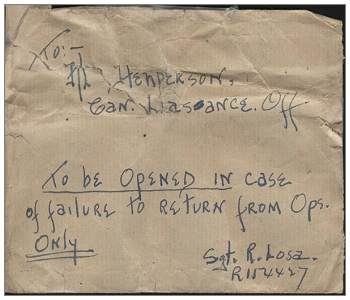 To:-
F/L Henderson,
Can. Liasoance. Off
To be Opened in case
of failure to return from Ops.
Only
Sgt. R. Losa
R114427